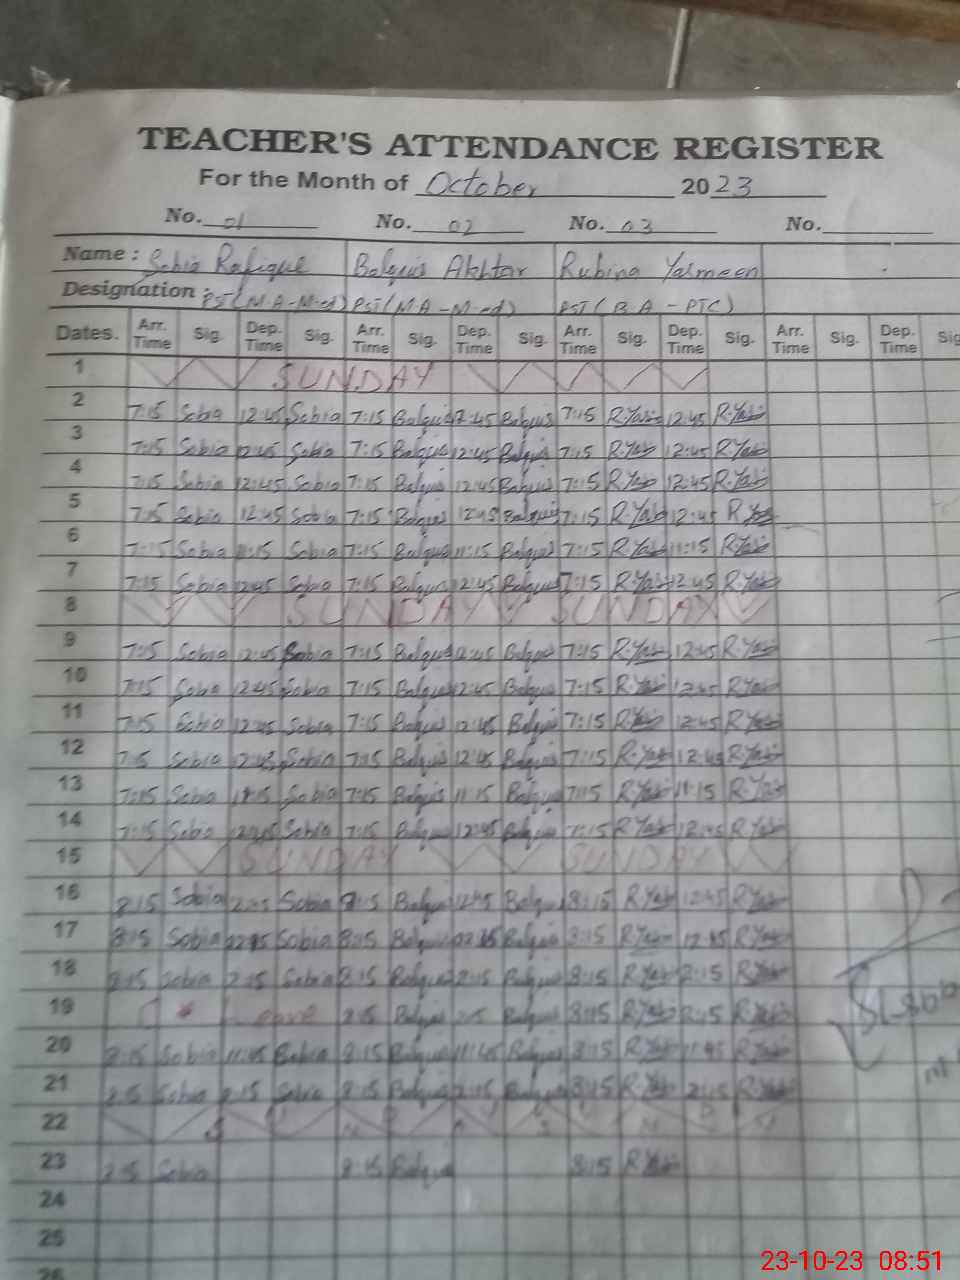 TEACHER'S ATTENDANCE REGISTER
For the Month of October 2023
No. 01 No. 02 No. 03 No.
Name : Sobia Rafique Balquis Akhtar Rubina Yasmeen
Designation : PST (M.A-M.ed) PST (M.A-M.ed) PST (B.A-PTC)
Dates. Arr. Time Sig. Dep. Time Sig. Arr. Time Sig. Dep. Time Sig. Arr. Time Sig. Dep. Time Sig. Arr. Time Sig. Dep. Time Sig
1 SUNDAY
2 7:15 Sobia 12:45 Sobia 7:15 Balquis 12:45 Balquis 7:15 R.Yas 12:45 R.Yas
3 7:15 Sobia 12:45 Sobia 7:15 Balquis 12:45 Balquis 7:15 R.Yas 12:45 R.Yas
4 7:15 Sobia 12:45 Sobia 7:15 Balquis 12:45 Balquis 7:15 R.Yas 12:45 R.Yas
5 7:15 Sobia 12:45 Sobia 7:15 Balquis 12:45 Balquis 7:15 R.Yas 12:45 R.Yas
6 7:15 Sobia 11:15 Sobia 7:15 Balquis 11:15 Balquis 7:15 R.Yas 11:15 R.Yas
7 7:15 Sobia 12:45 Sobia 7:15 Balquis 12:45 Balquis 7:15 R.Yas 12:45 R.Yas
8 SUNDAY SUNDAY
9 7:15 Sobia 12:45 Sobia 7:15 Balquis 12:45 Balquis 7:15 R.Yas 12:45 R.Yas
10 7:15 Sobia 12:45 Sobia 7:15 Balquis 12:45 Balquis 7:15 R.Yas 12:45 R.Yas
11 7:15 Sobia 12:45 Sobia 7:15 Balquis 12:45 Balquis 7:15 R.Yas 12:45 R.Yas
12 7:15 Sobia 12:45 Sobia 7:15 Balquis 12:45 Balquis 7:15 R.Yas 12:45 R.Yas
13 7:15 Sobia 11:15 Sobia 7:15 Balquis 11:15 Balquis 7:15 R.Yas 11:15 R.Yas
14 7:15 Sobia 12:45 Sobia 7:15 Balquis 12:45 Balquis 7:15 R.Yas 12:45 R.Yas
15 SUNDAY SUNDAY
16 8:15 Sobia Sobia 8:15 Balquis 12:45 Balquis 8:15 R.Yas 12:45 R.Yas
17 8:15 Sobia Sobia 8:15 Balquis Balquis 8:15 R.Yas 12:45 R.Yas
18 8:15 Sobia 2:15 Sobia 8:15 Balquis 2:15 Balquis 8:15 R.Yas 2:15 R.Yas
19 Leave 8:15 Balquis 2:15 Balquis 8:15 R.Yas 2:15 R.Yas
20 8:15 Sobia 11:45 Sobia 8:15 Balquis 11:45 Balquis 8:15 R.Yas 11:45 R.Yas
21 8:15 Sobia 2:15 Sobia 8:15 Balquis 2:15 Balquis 8:15 R.Yas 2:15 R.Yas
22
23 8:15 Sobia 8:15 Balquis 8:15 R.Yas
24
25
26
23-10-23 08:51